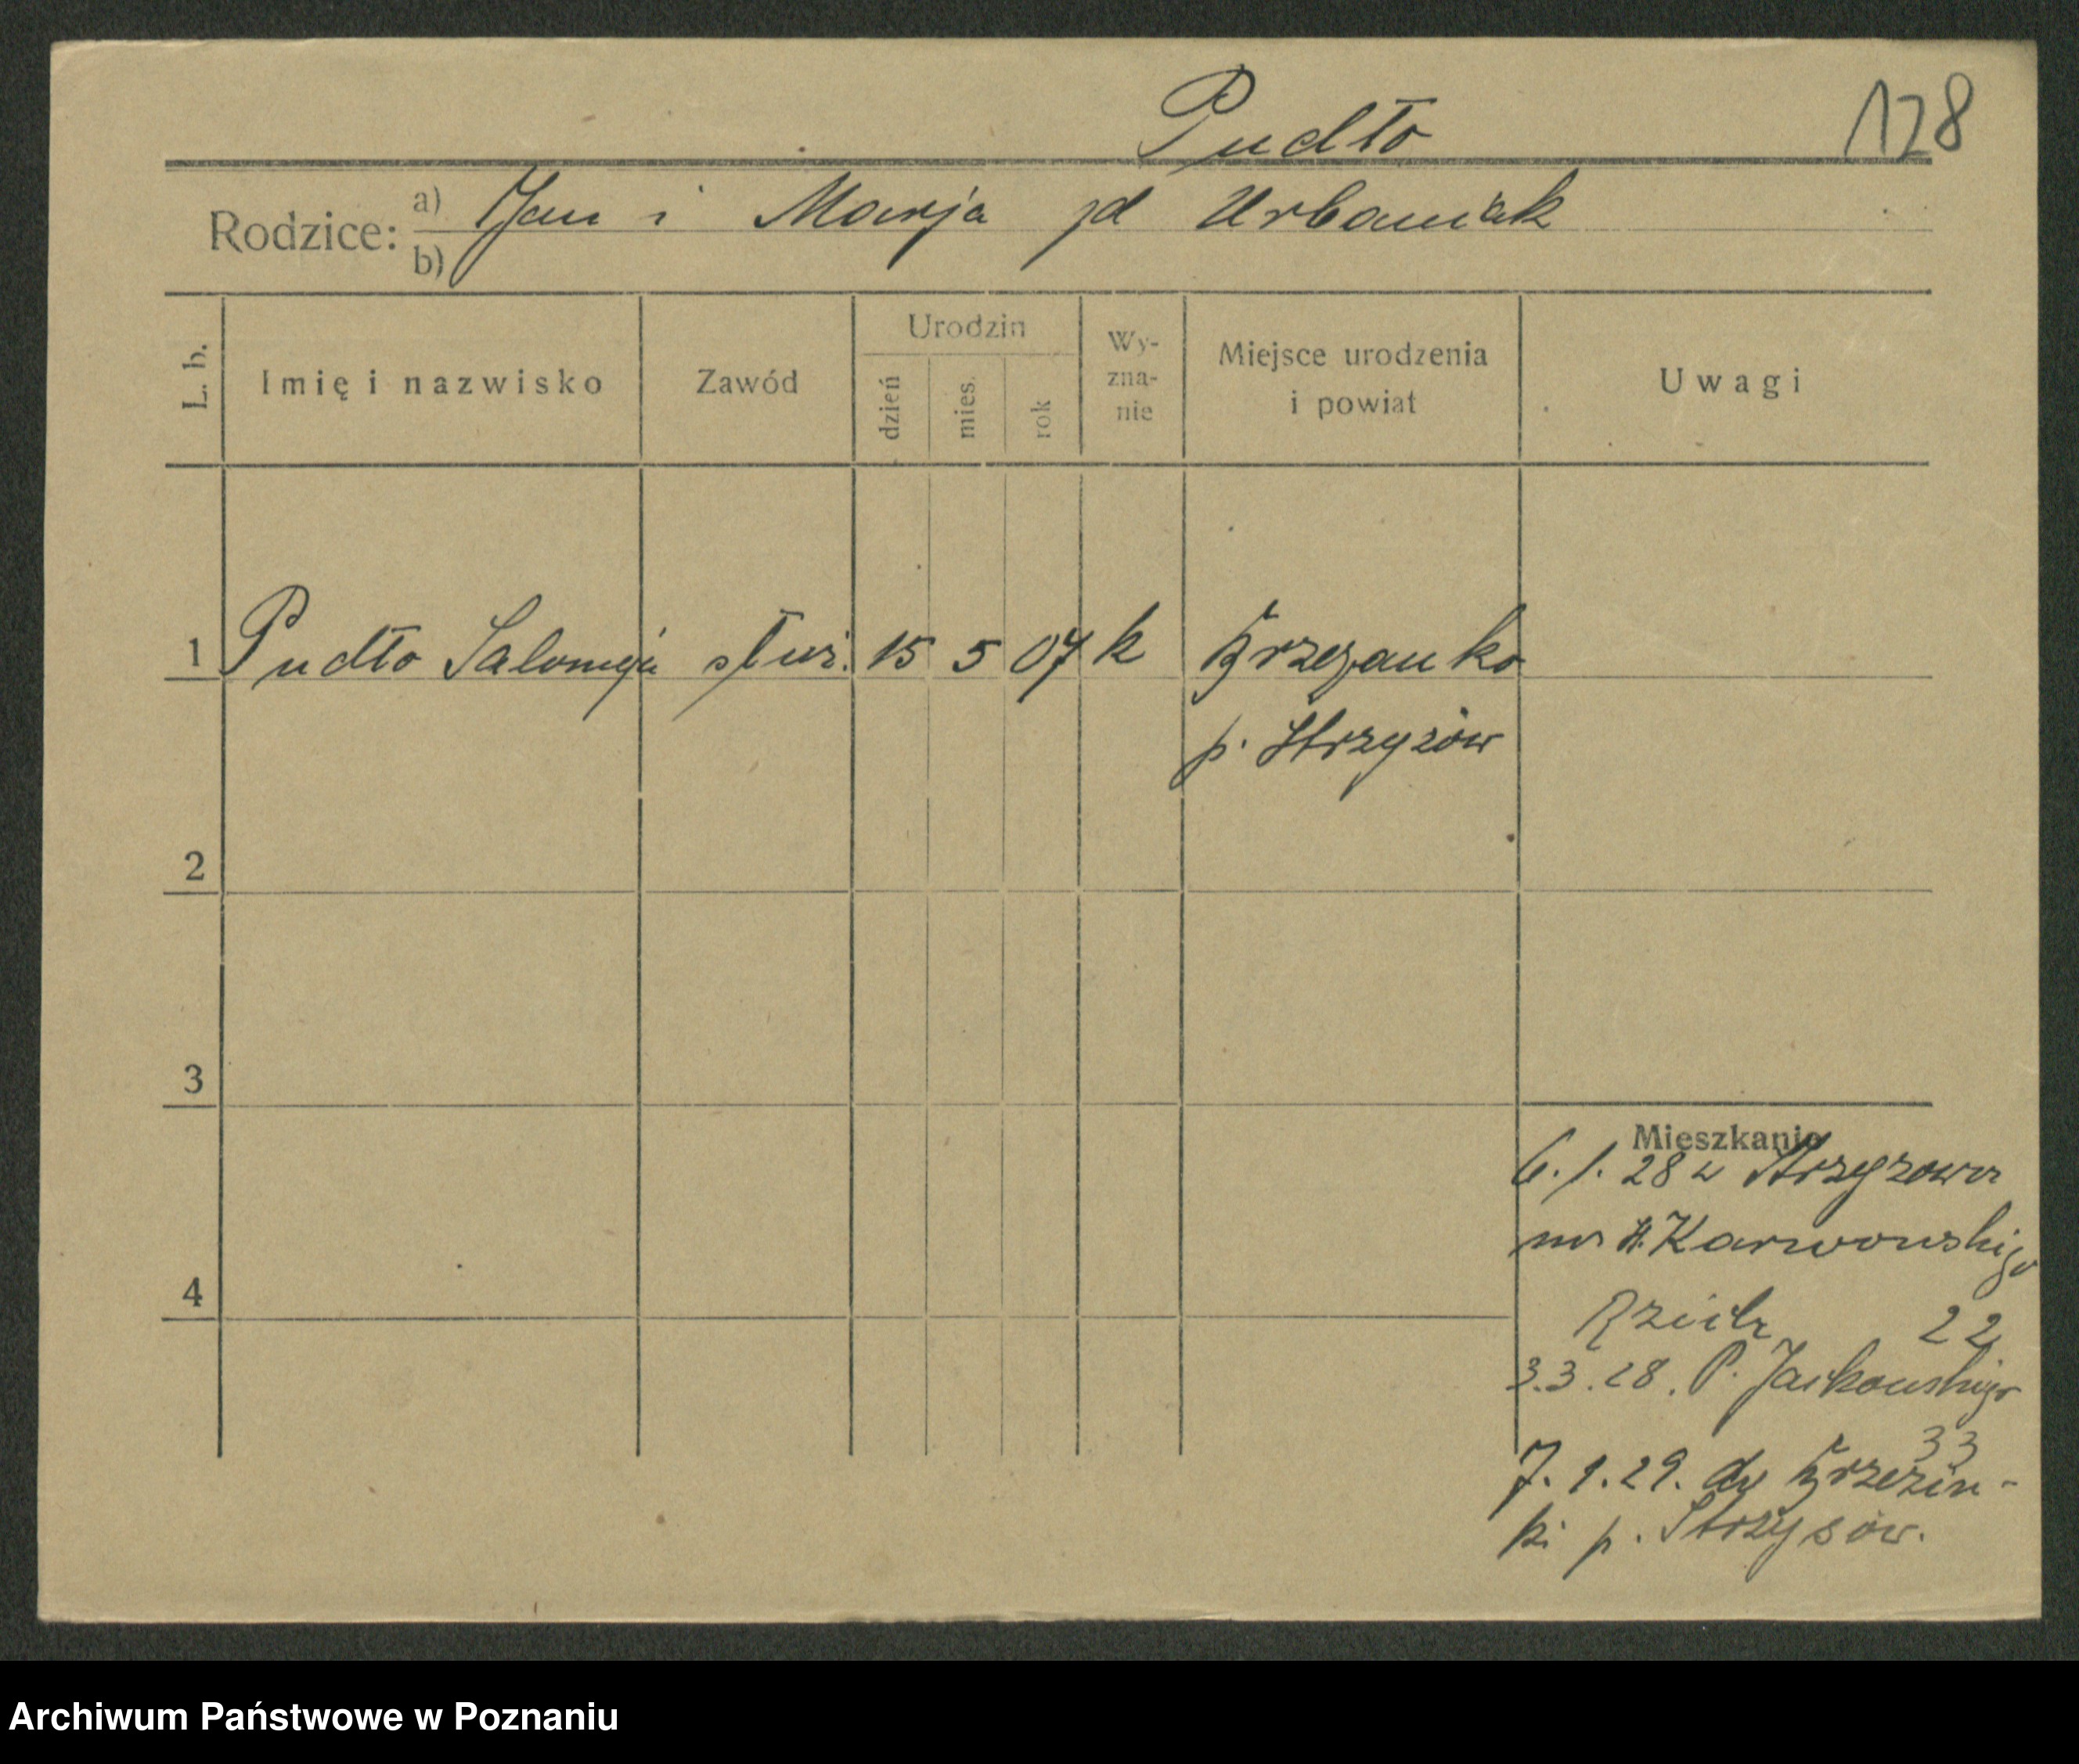 128
Pudło
Rodzice: a) Jan i Marja zd Urbaniak
b)
L. b. Imię i nazwisko Zawód Urodzin dzień mies. rok Wy-zna-nie Miejsce urodzenia i powiat Uwagi
1 Pudło Salomeja służ. 15 5 07 k Brzezanko
p. Strzyzów
2
3
4
Mieszkanie
6. 1. 28 w Strzyzowa
na Karwowskiego
22
3.3.28. P. Jackowskiego
33
7. 1. 29. do Brzezin-
ki p. Strzysów.
Archiwum Państwowe w Poznaniu